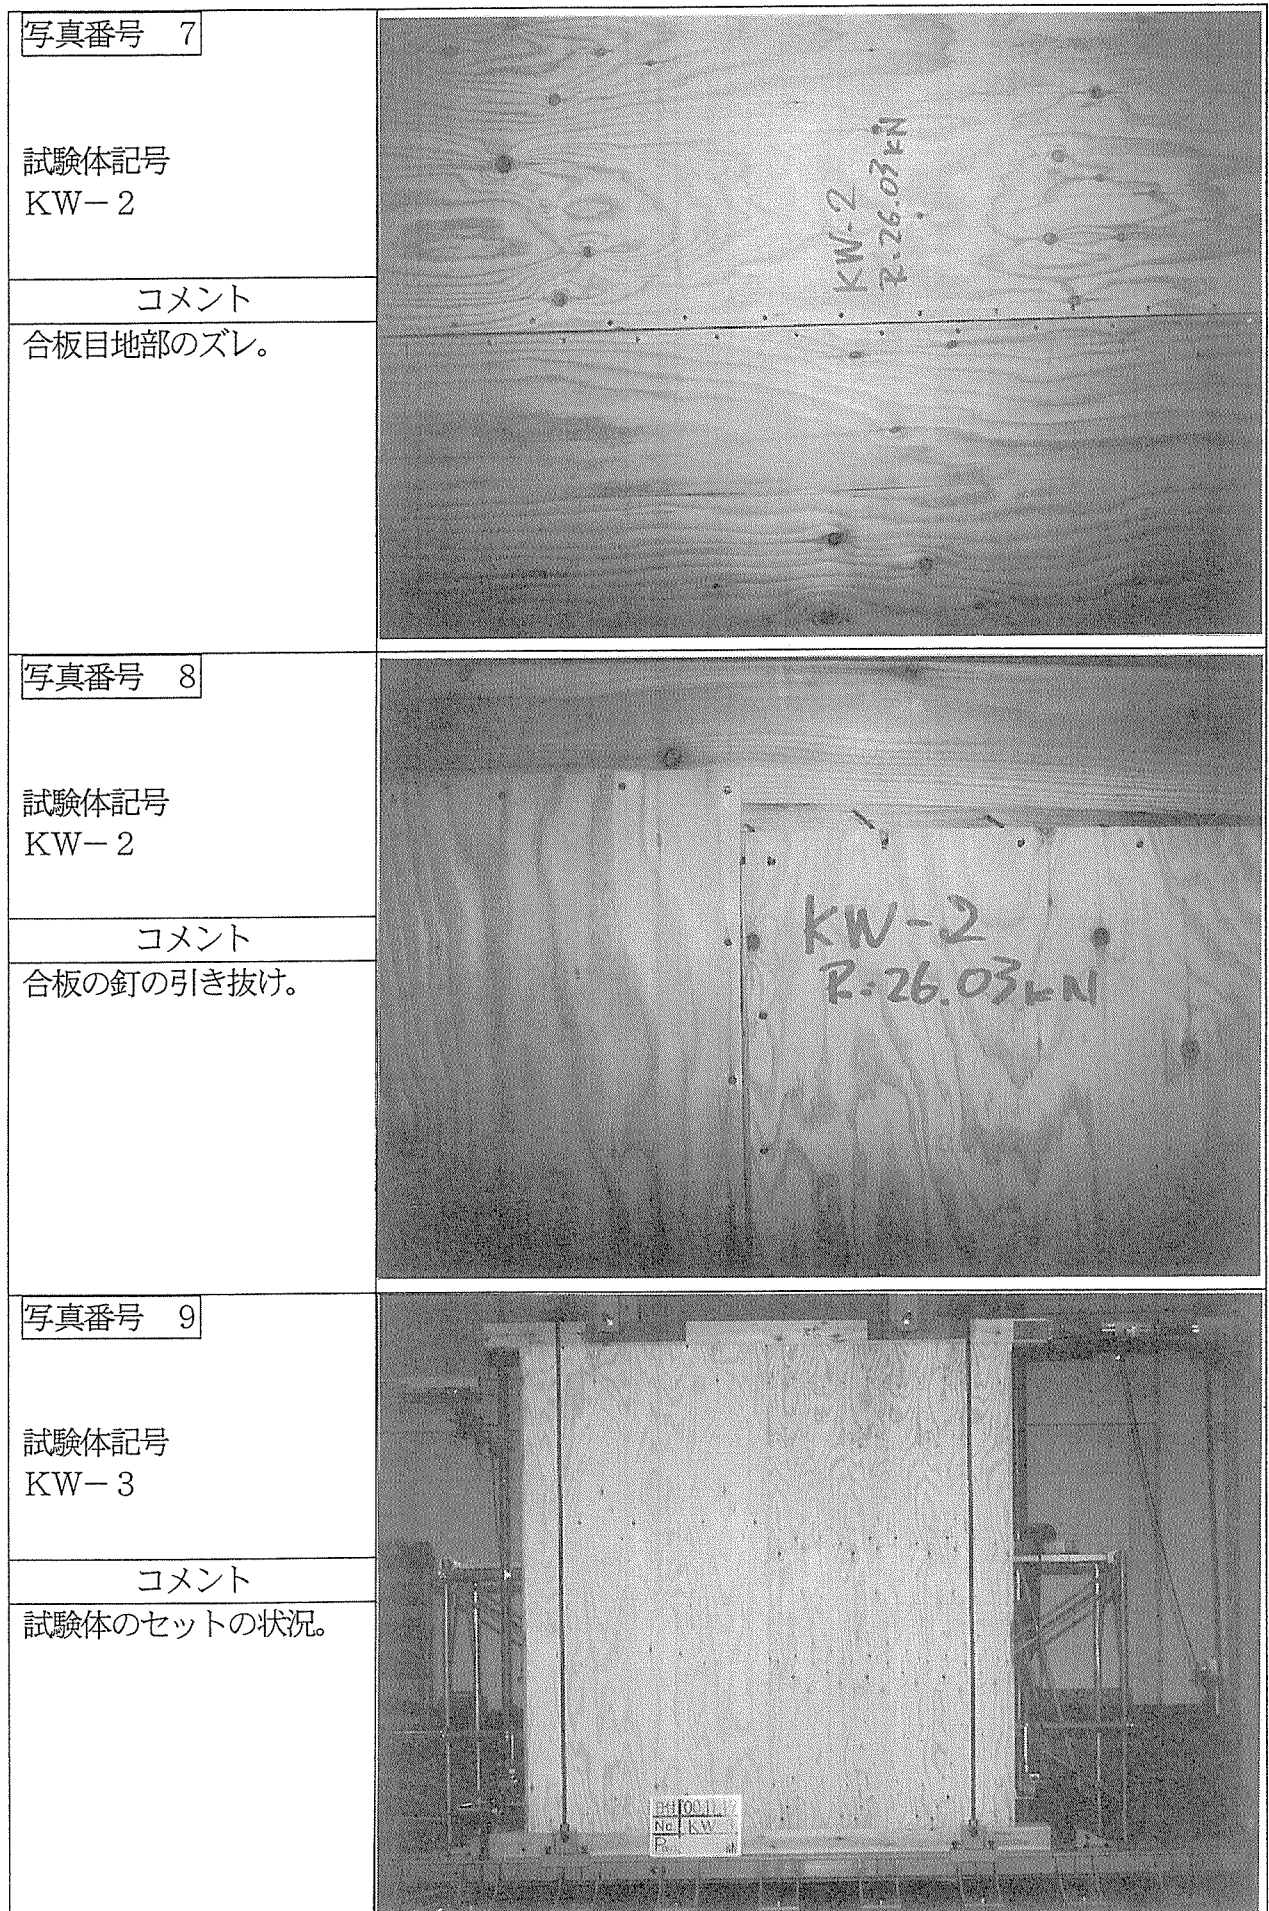 写真番号　7
試験体記号
KW－2
コメント
合板目地部のズレ。
KW-2
R-26.03kN
写真番号　8
試験体記号
KW－2
コメント
合板の釘の引き抜け。
KW-2
R-26.03kN
写真番号　9
試験体記号
KW－3
コメント
試験体のセットの状況。
No. KW